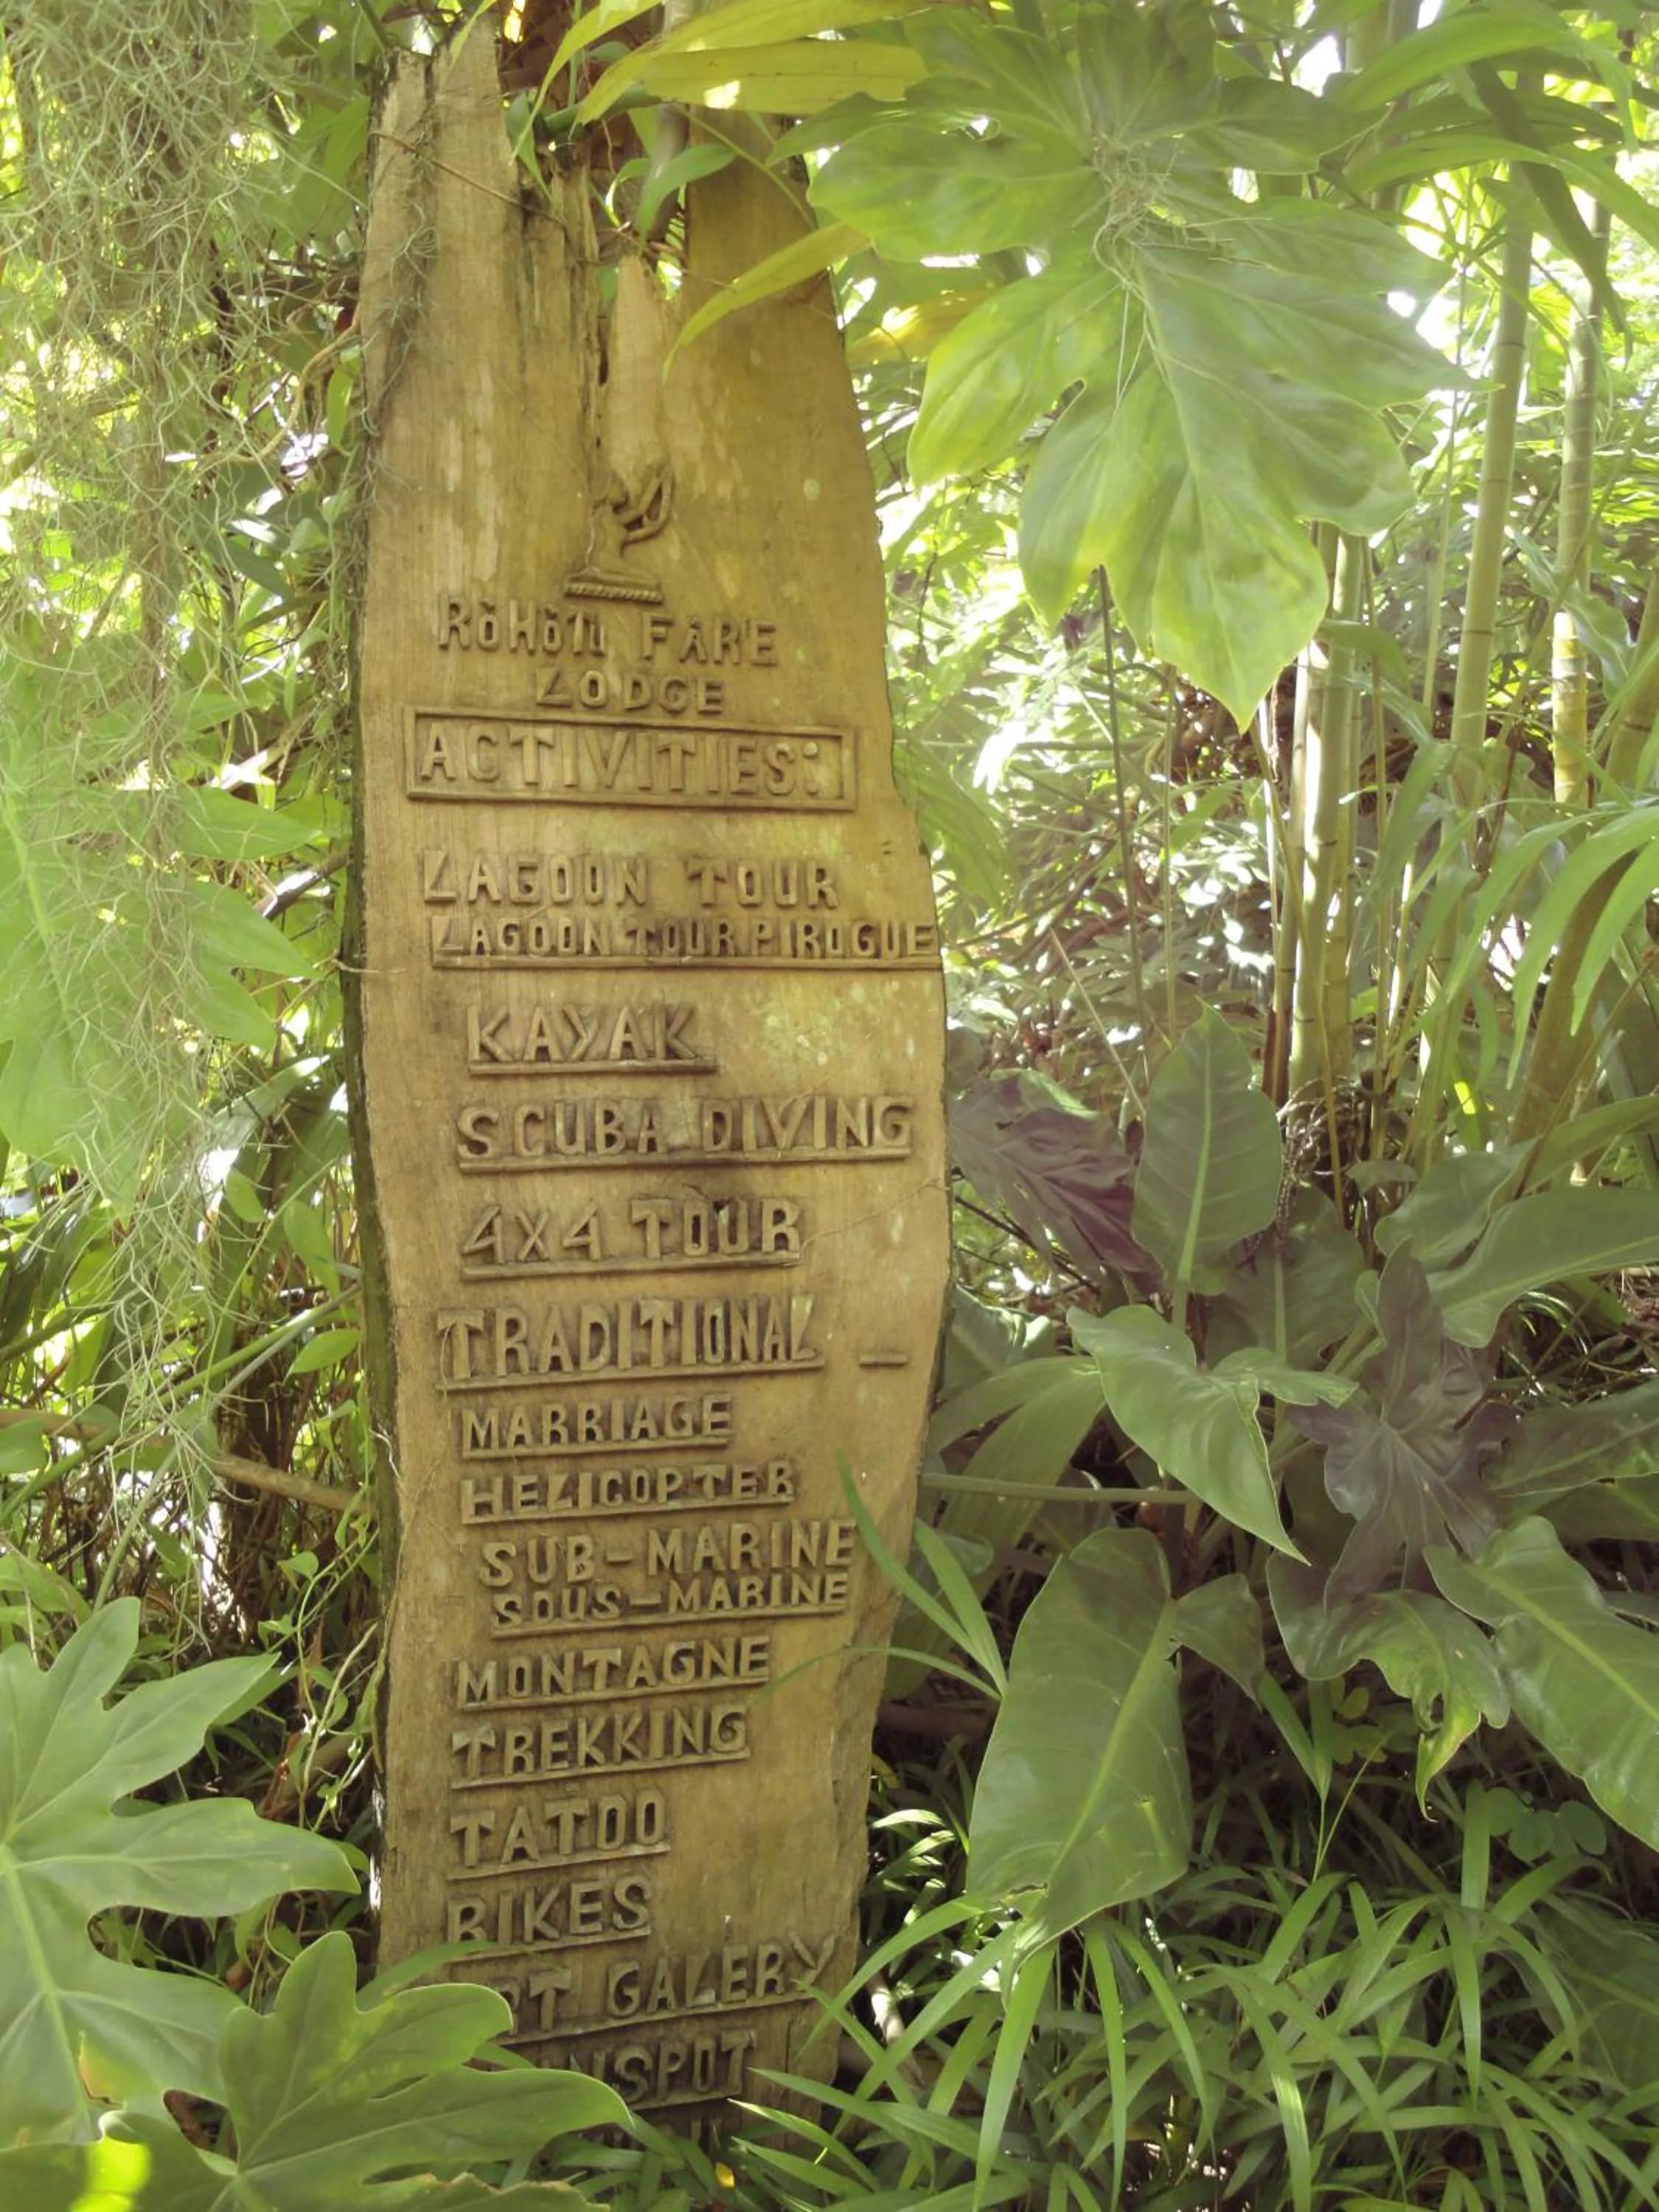 RòHòTU FARE
LODGE
ACTIVITIES:
LAGOON TOUR
LAGOON TOUR PIROGUE
KAYAK
SCUBA DIVING
4X4 TOUR
TRADITIONAL -
MARRIAGE
HELICOPTER
SUB-MARINE
SOUS-MARINE
MONTAGNE
TREKKING
TATOO
BIKES
GALERY